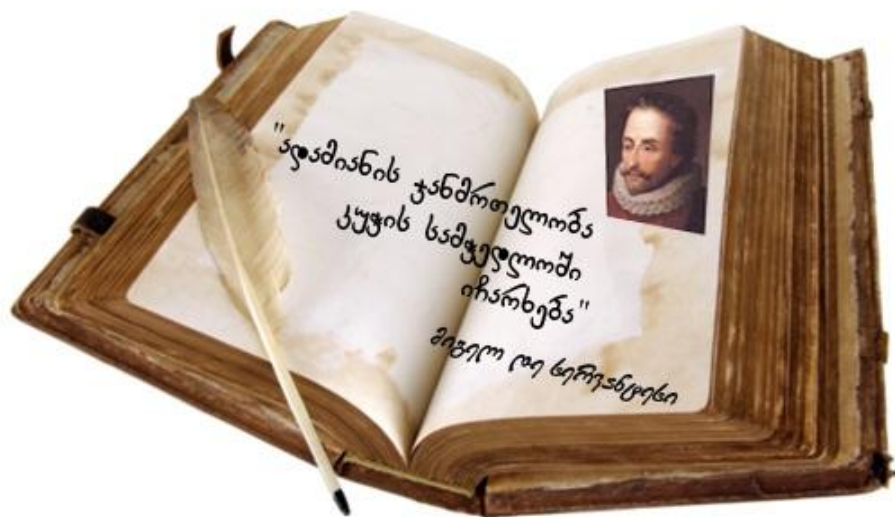 "ადამიანის ჯანმრთელობა
კუჭის სამჭედლოში
იჩარხება"
მიგელ დე სერვანტესი